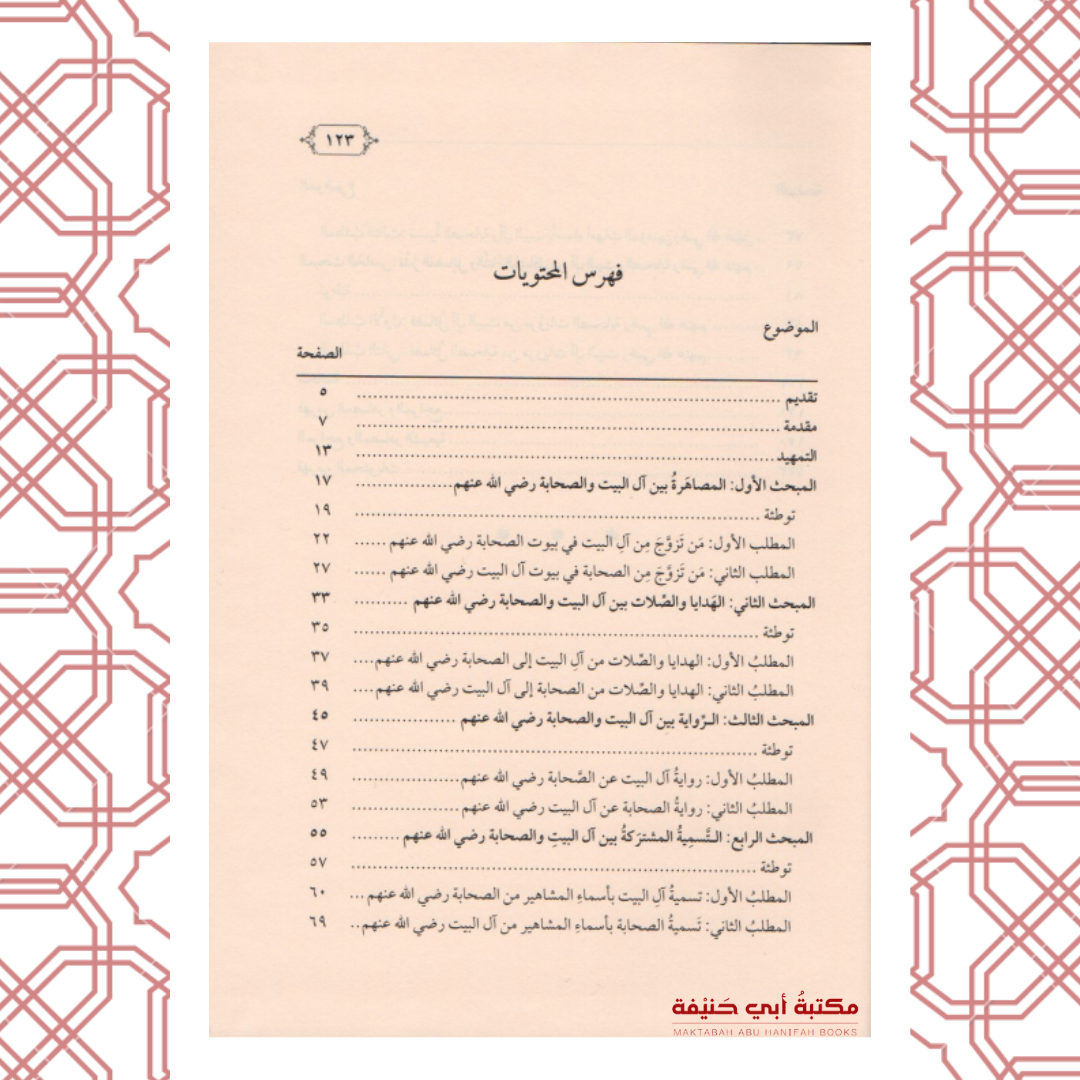 ١٢٣
فهرس المحتويات
الموضوع
الصفحة
تقديم ........ ٥
مقدمة ........ ٧
التمهيد ........ ١٣
المبحث الأول: المصاهَرةُ بين آل البيت والصحابة رضي الله عنهم ........ ١٧
توطئة ........ ١٩
المطلب الأول: مَن تَزوَّجَ مِن آلِ البيت في بيوت الصحابة رضي الله عنهم ...... ٢٢
المطلب الثاني: مَن تَزوَّجَ مِن الصحابة في بيوت آل البيت رضي الله عنهم ...... ٢٧
المبحث الثاني: الهَدايا والصِّلات بين آل البيت والصحابة رضي الله عنهم .......... ٣٣
توطئة ........ ٣٥
المطلبُ الأول: الهدايا والصِّلات من آلِ البيت إلى الصحابة رضي الله عنهم .... ٣٧
المطلبُ الثاني: الهدايا والصِّلات من الصحابة إلى آل البيت رضي الله عنهم .... ٣٩
المبحث الثالث: الـرِّواية بين آل البيت والصحابة رضي الله عنهم ........ ٤٥
توطئة ........ ٤٧
المطلبُ الأول: روايةُ آل البيت عن الصَّحابة رضي الله عنهم ........ ٤٩
المطلبُ الثاني: روايةُ الصحابة عن آل البيت رضي الله عنهم ........ ٥٣
المبحث الرابع: التَّسمِيةُ المشترَكةُ بين آل البيتِ والصحابة رضي الله عنهم ......... ٥٥
توطئة ........ ٥٧
المطلبُ الأول: تسميةُ آلِ البيت بأسماءِ المشاهير من الصحابة رضي الله عنهم ... ٦٠
المطلبُ الثاني: تَسميةُ الصحابة بأسماءِ المشاهير من آل البيت رضي الله عنهم .. ٦٩
مكتبةُ أبي حَنيْفة
MAKTABAH ABU HANIFAH BOOKS